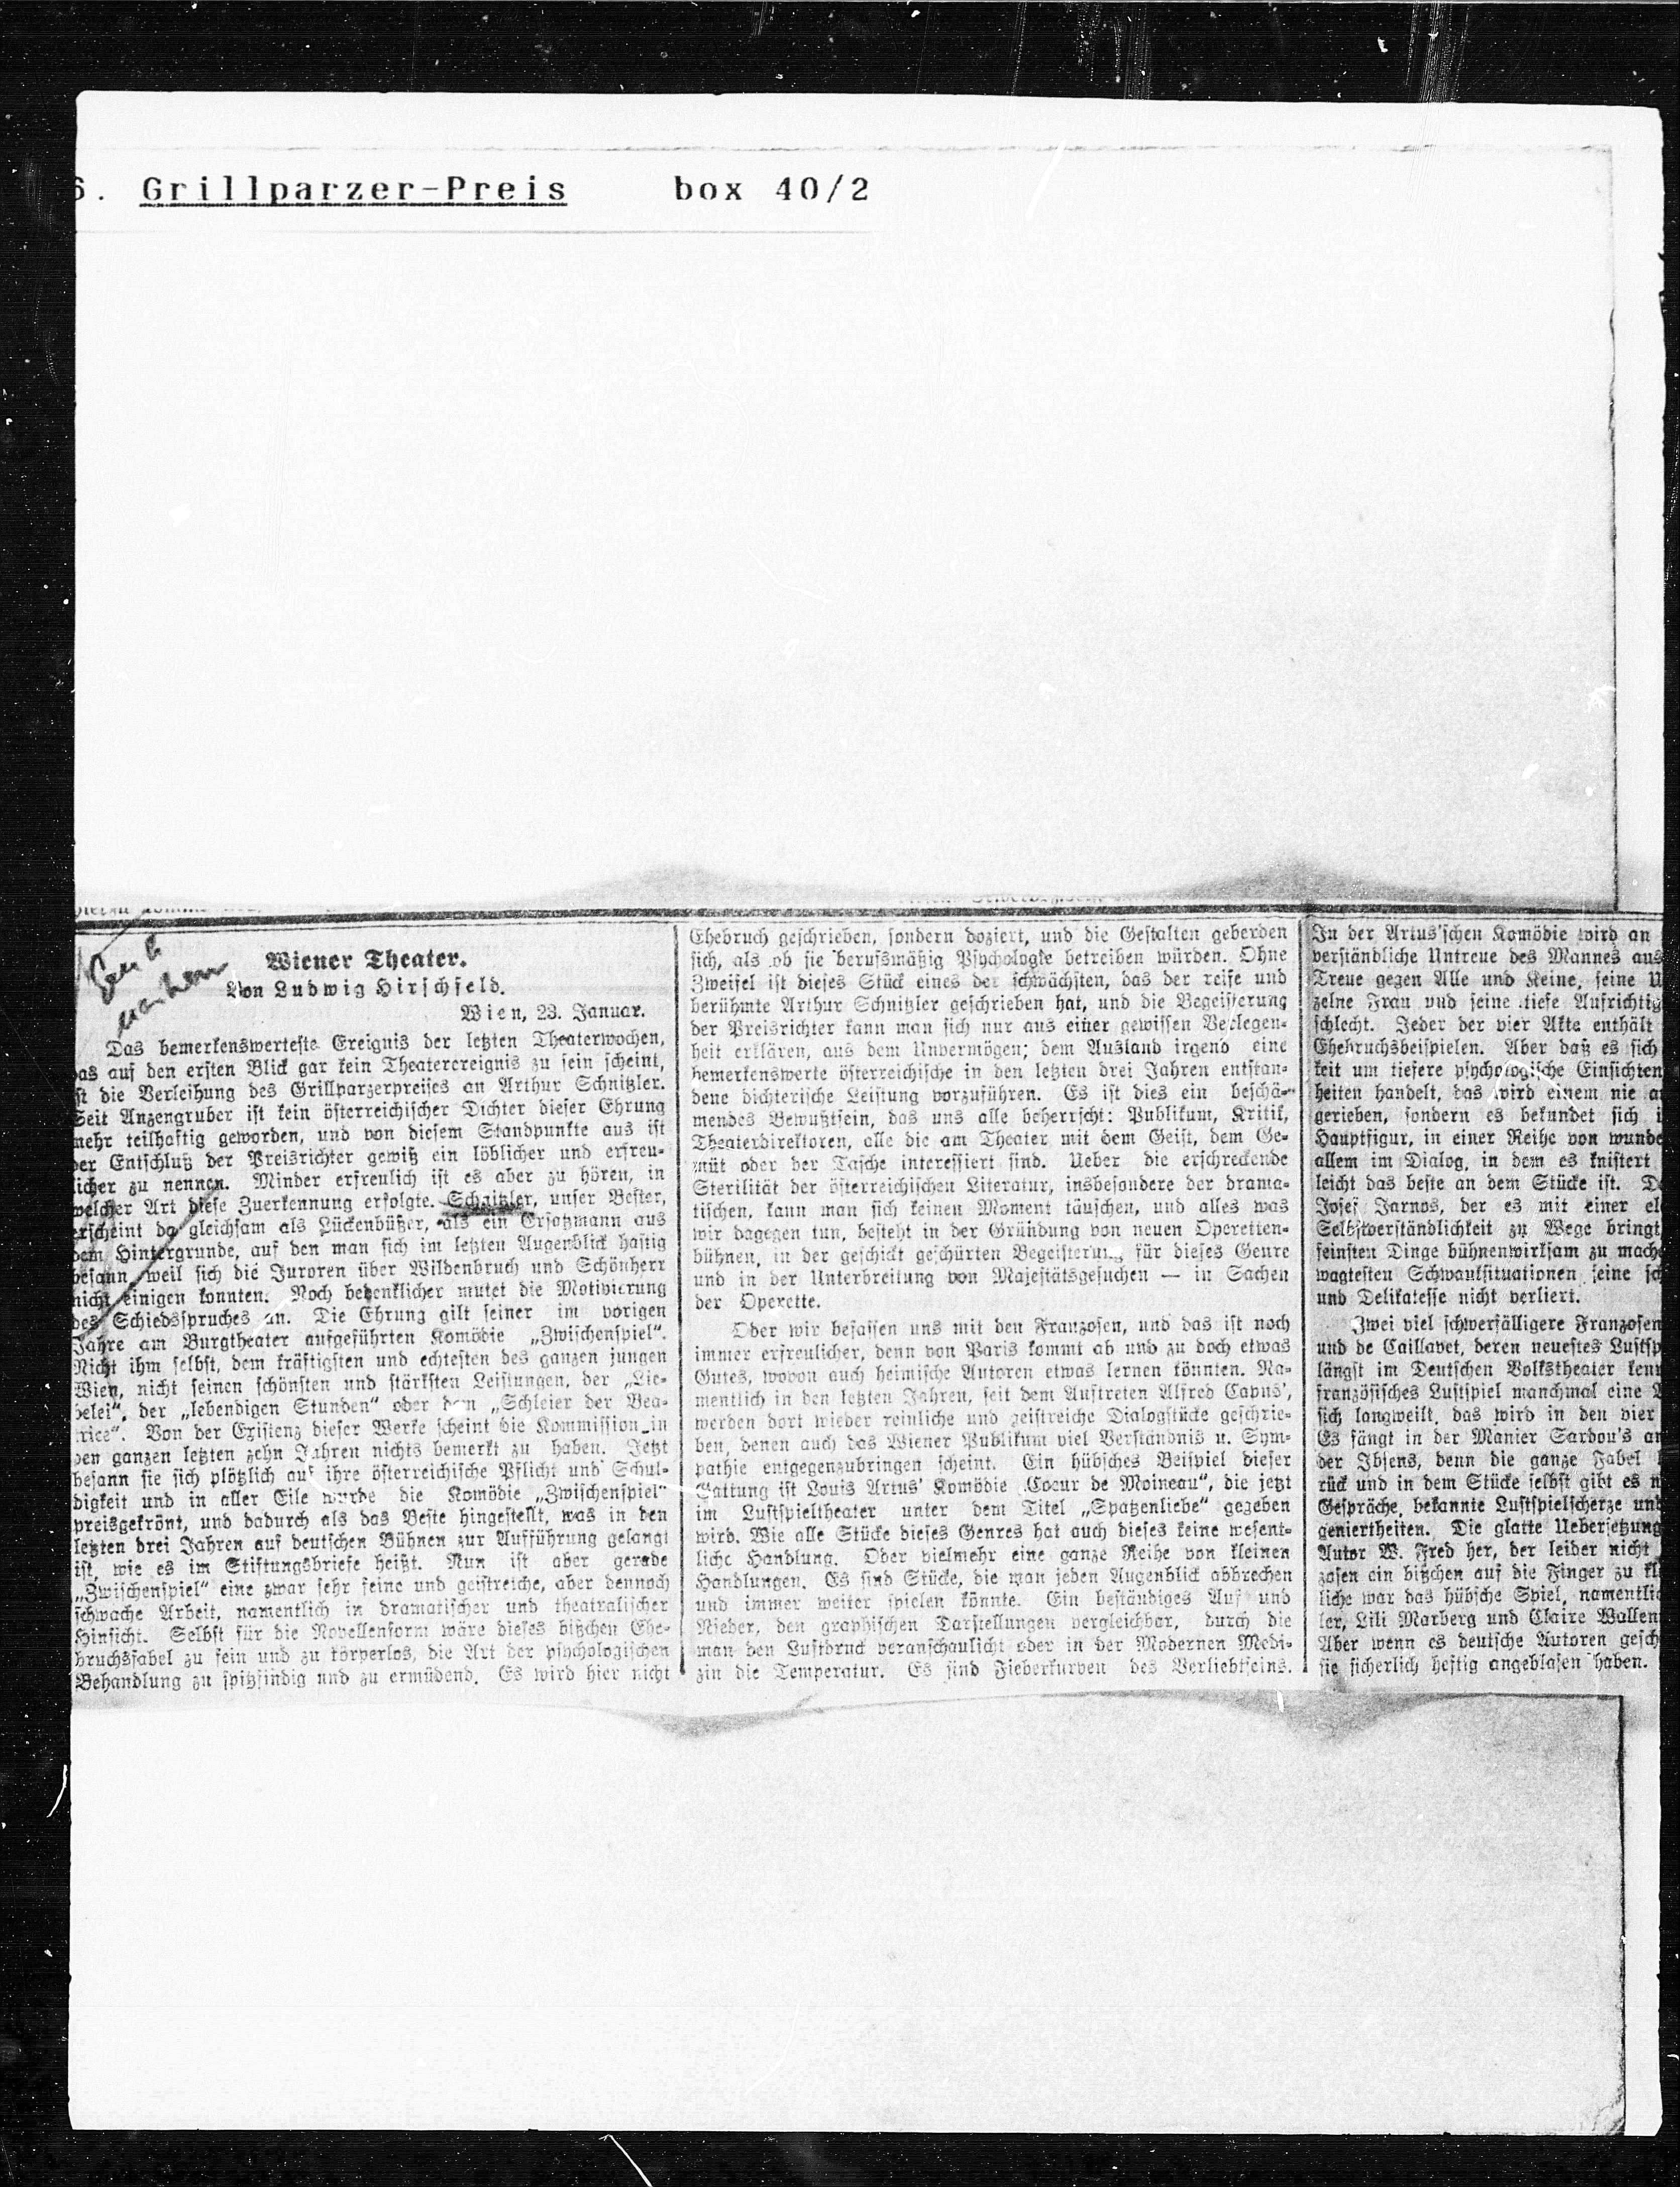 6. Grillparzer-Preis box 40/2
Wiener Theater.
Von Ludwig Hirschfeld.
Wien, 23. Januar.
Das bemerkenswerteste Ereignis der letzten Theaterwochen,
das auf den ersten Blick gar kein Theaterereignis zu sein scheint,
ist die Verleihung des Grillparzerpreises an Arthur Schnitzler.
Seit Anzengruber ist kein österreichischer Dichter dieser Ehrung
mehr teilhaftig geworden, und von diesem Standpunkte aus ist
der Entschluß der Preisrichter gewiß ein löblicher und erfreu-
licher zu nennen. Minder erfreulich ist es aber zu hören, in
welcher Art diese Zuerkennung erfolgte. Schnitzler, unser Bester,
erscheint da gleichsam als Lückenbüßer, als ein Ersatzmann aus
dem Hintergrunde, auf den man sich im letzten Augenblick hastig
besann, weil sich die Juroren über Wildenbruch und Schönherr
nicht einigen konnten. Noch bedenklicher mutet die Motivierung
des Schiedsspruches an. Die Ehrung gilt seiner im vorigen
Jahre am Burgtheater aufgeführten Komödie „Zwischenspiel“.
Nicht ihm selbst, dem kräftigsten und echtesten des ganzen jungen
Wien, nicht seinen schönsten und stärksten Leistungen, der „Lie-
belei“, der „lebendigen Stunden“ oder dem „Schleier der Bea-
trice“. Von der Existenz dieser Werke scheint die Kommission in
den ganzen letzten zehn Jahren nichts bemerkt zu haben. Jetzt
besann sie sich plötzlich auf ihre österreichische Pflicht und Schul-
digkeit und in aller Eile wurde die Komödie „Zwischenspiel“
preisgekrönt, und dadurch als das Beste hingestellt, was in den
letzten drei Jahren auf deutschen Bühnen zur Aufführung gelangt
ist, wie es im Stiftungsbriefe heißt. Nun ist aber gerade
„Zwischenspiel“ eine zwar sehr feine und geistreiche, aber dennoch
schwache Arbeit, namentlich in dramatischer und theatralischer
Hinsicht. Selbst für die Novellenform wäre dieses bißchen Ehe-
bruchsfabel zu fein und zu körperlos, die Art der psychologischen
Behandlung zu spitzfindig und zu ermüdend. Es wird hier nicht
Ehebruch geschrieben, sondern doziert, und die Gestalten geberden
sich, als ob sie berufsmäßig Psychologie betreiben würden. Ohne
Zweifel ist dieses Stück eines der schwächsten, das der reife und
berühmte Arthur Schnitzler geschrieben hat, und die Begeisterung
der Preisrichter kann man sich nur aus einer gewissen Verlegen-
heit erklären, aus dem Unvermögen; dem Ausland irgend eine
bemerkenswerte österreichische in den letzten drei Jahren entstan-
dene dichterische Leistung vorzuführen. Es ist dies ein beschä-
mendes Bewußtsein, das uns alle beherrscht: Publikum, Kritik,
Theaterdirektoren, alle die am Theater mit dem Geist, dem Ge-
müt oder der Tasche interessiert sind. Ueber die erschreckende
Sterilität der österreichischen Literatur, insbesondere der drama-
tischen, kann man sich keinen Moment täuschen, und alles was
wir dagegen tun, besteht in der Gründung von neuen Operetten-
bühnen, in der geschickt geschürten Begeisterung für dieses Genre
und in der Unterbreitung von Majestätsgesuchen — in Sachen
der Operette.
Oder wir befassen uns mit den Franzosen, und das ist noch
immer erfreulicher, denn von Paris kommt ab und zu doch etwas
Gutes, wovon auch heimische Autoren etwas lernen könnten. Na-
mentlich in den letzten Jahren, seit dem Auftreten Alfred Capus’,
werden dort wieder reinliche und geistreiche Dialogstücke geschrie-
ben, denen auch das Wiener Publikum viel Verständnis u. Sym-
pathie entgegenzubringen scheint. Ein hübsches Beispiel dieser
Gattung ist Louis Artus’ Komödie „Coeur de Moineau“, die jetzt
im Lustspieltheater unter dem Titel „Spatzenliebe“ gegeben
wird. Wie alle Stücke dieses Genres hat auch dieses keine wesent-
liche Handlung. Oder vielmehr eine ganze Reihe von kleinen
Handlungen. Es sind Stücke, die man jeden Augenblick abbrechen
und immer weiter spielen könnte. Ein beständiges Auf und
Nieder, den graphischen Darstellungen vergleichbar, durch die
man den Luftdruck veranschaulicht oder in der Modernen Medi-
zin die Temperatur. Es sind Fieberkurven des Verliebtseins.
In der Artus’schen Komödie wird an
verständliche Untreue des Mannes aus
Treue gegen Alle und Keine, seine U
zelne Frau und seine tiefe Aufrichtig
schlecht. Jeder der vier Akte enthält
Ehebruchsbeispielen. Aber daß es sich
keit um tiefere psychologische Einsichten
heiten handelt, das wird einem nie a
gerieben, sondern es bekundet sich i
Hauptfigur, in einer Reihe von wunde
allem im Dialog, in dem es knistert
leicht das beste an dem Stücke ist. D
Josef Jarnos, der es mit einer el
Selbstverständlichkeit zu Wege bringt,
feinsten Dinge bühnenwirksam zu mache
wagtesten Schwanksituationen seine sch
und Delikatesse nicht verliert.
Zwei viel schwerfälligere Franzosen
und de Caillavet, deren neuestes Lustsp
längst im Deutschen Volkstheater kenn
französisches Lustspiel manchmal eine
sich langweilt, das wird in den vier
Es fängt in der Manier Sardou’s an
der Ibsens, denn die ganze Fabel
rück und in dem Stücke selbst gibt es n
Gespräche, bekannte Lustspielscherze und
geniertheiten. Die glatte Uebersetzung
Autor W. Fred her, der leider nicht
zosen ein bißchen auf die Finger zu kl
liche war das hübsche Spiel, namentlic
ler, Lili Marberg und Claire Wallen
Aber wenn es deutsche Autoren gesch
sie sicherlich heftig angeblasen haben.